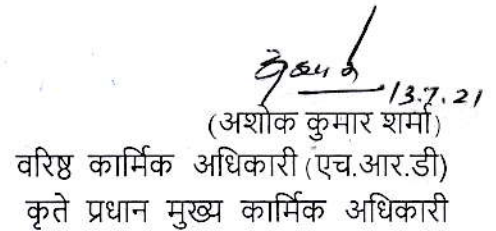 13.7.21
(अशोक कुमार शर्मा)
वरिष्ठ कार्मिक अधिकारी (एच.आर.डी)
कृते प्रधान मुख्य कार्मिक अधिकारी